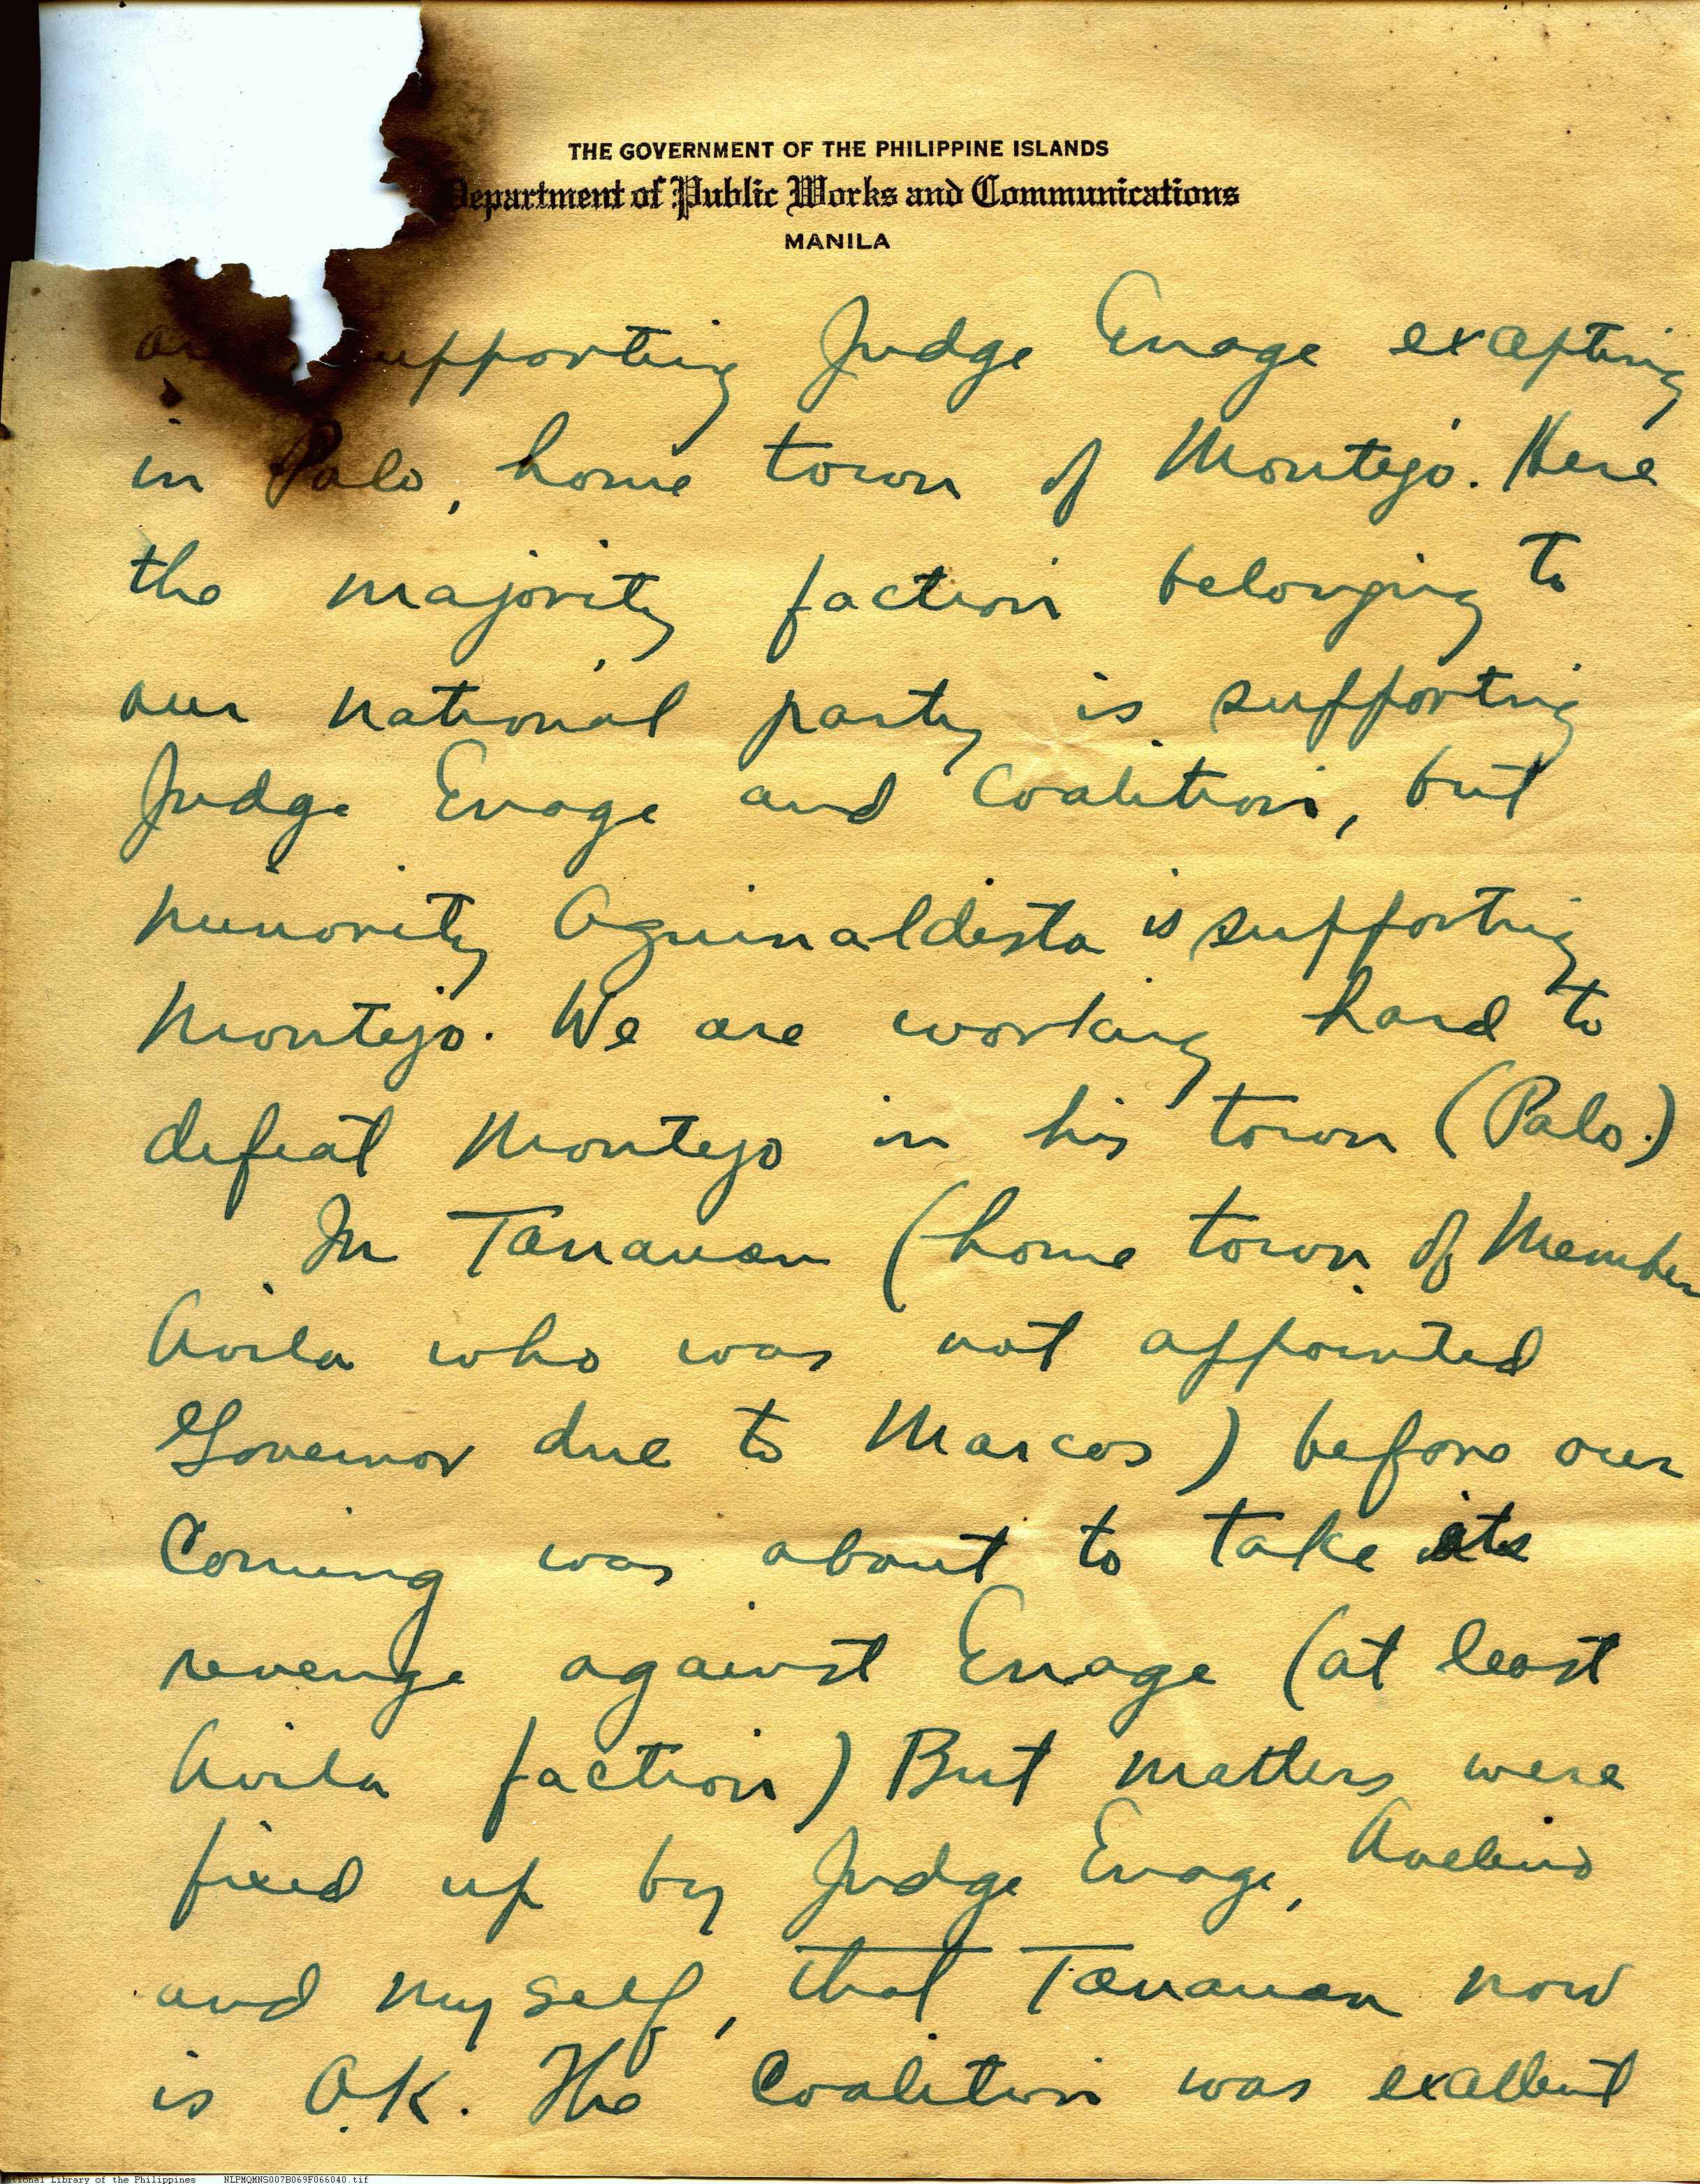 THE GOVERNMENT OF THE PHILIPPINE ISLANDS
Department of Public Works and Communications
MANILA
supporting Judge Enage excepting
in Palo, home town of Montejo. Here
the majority faction belonging to
our national party is supporting
Judge Enage and Coalition, but
minority Aguinaldista is supporting
Montejo. We are working hard to
defeat Montejo in his town (Palo.)
In Tanauan (home town of Member
Avila who was not appointed
Governor due to Marcos) before our
Coming was about to take its
revenge against Enage (at least
Avila faction) But matters were
fixed up by Judge Enage, Avelino
and myself, that Tanauan now
is O.K. The Coalition was excellent
National Library of the Philippines NLPMQMNS007B069F066040.tif